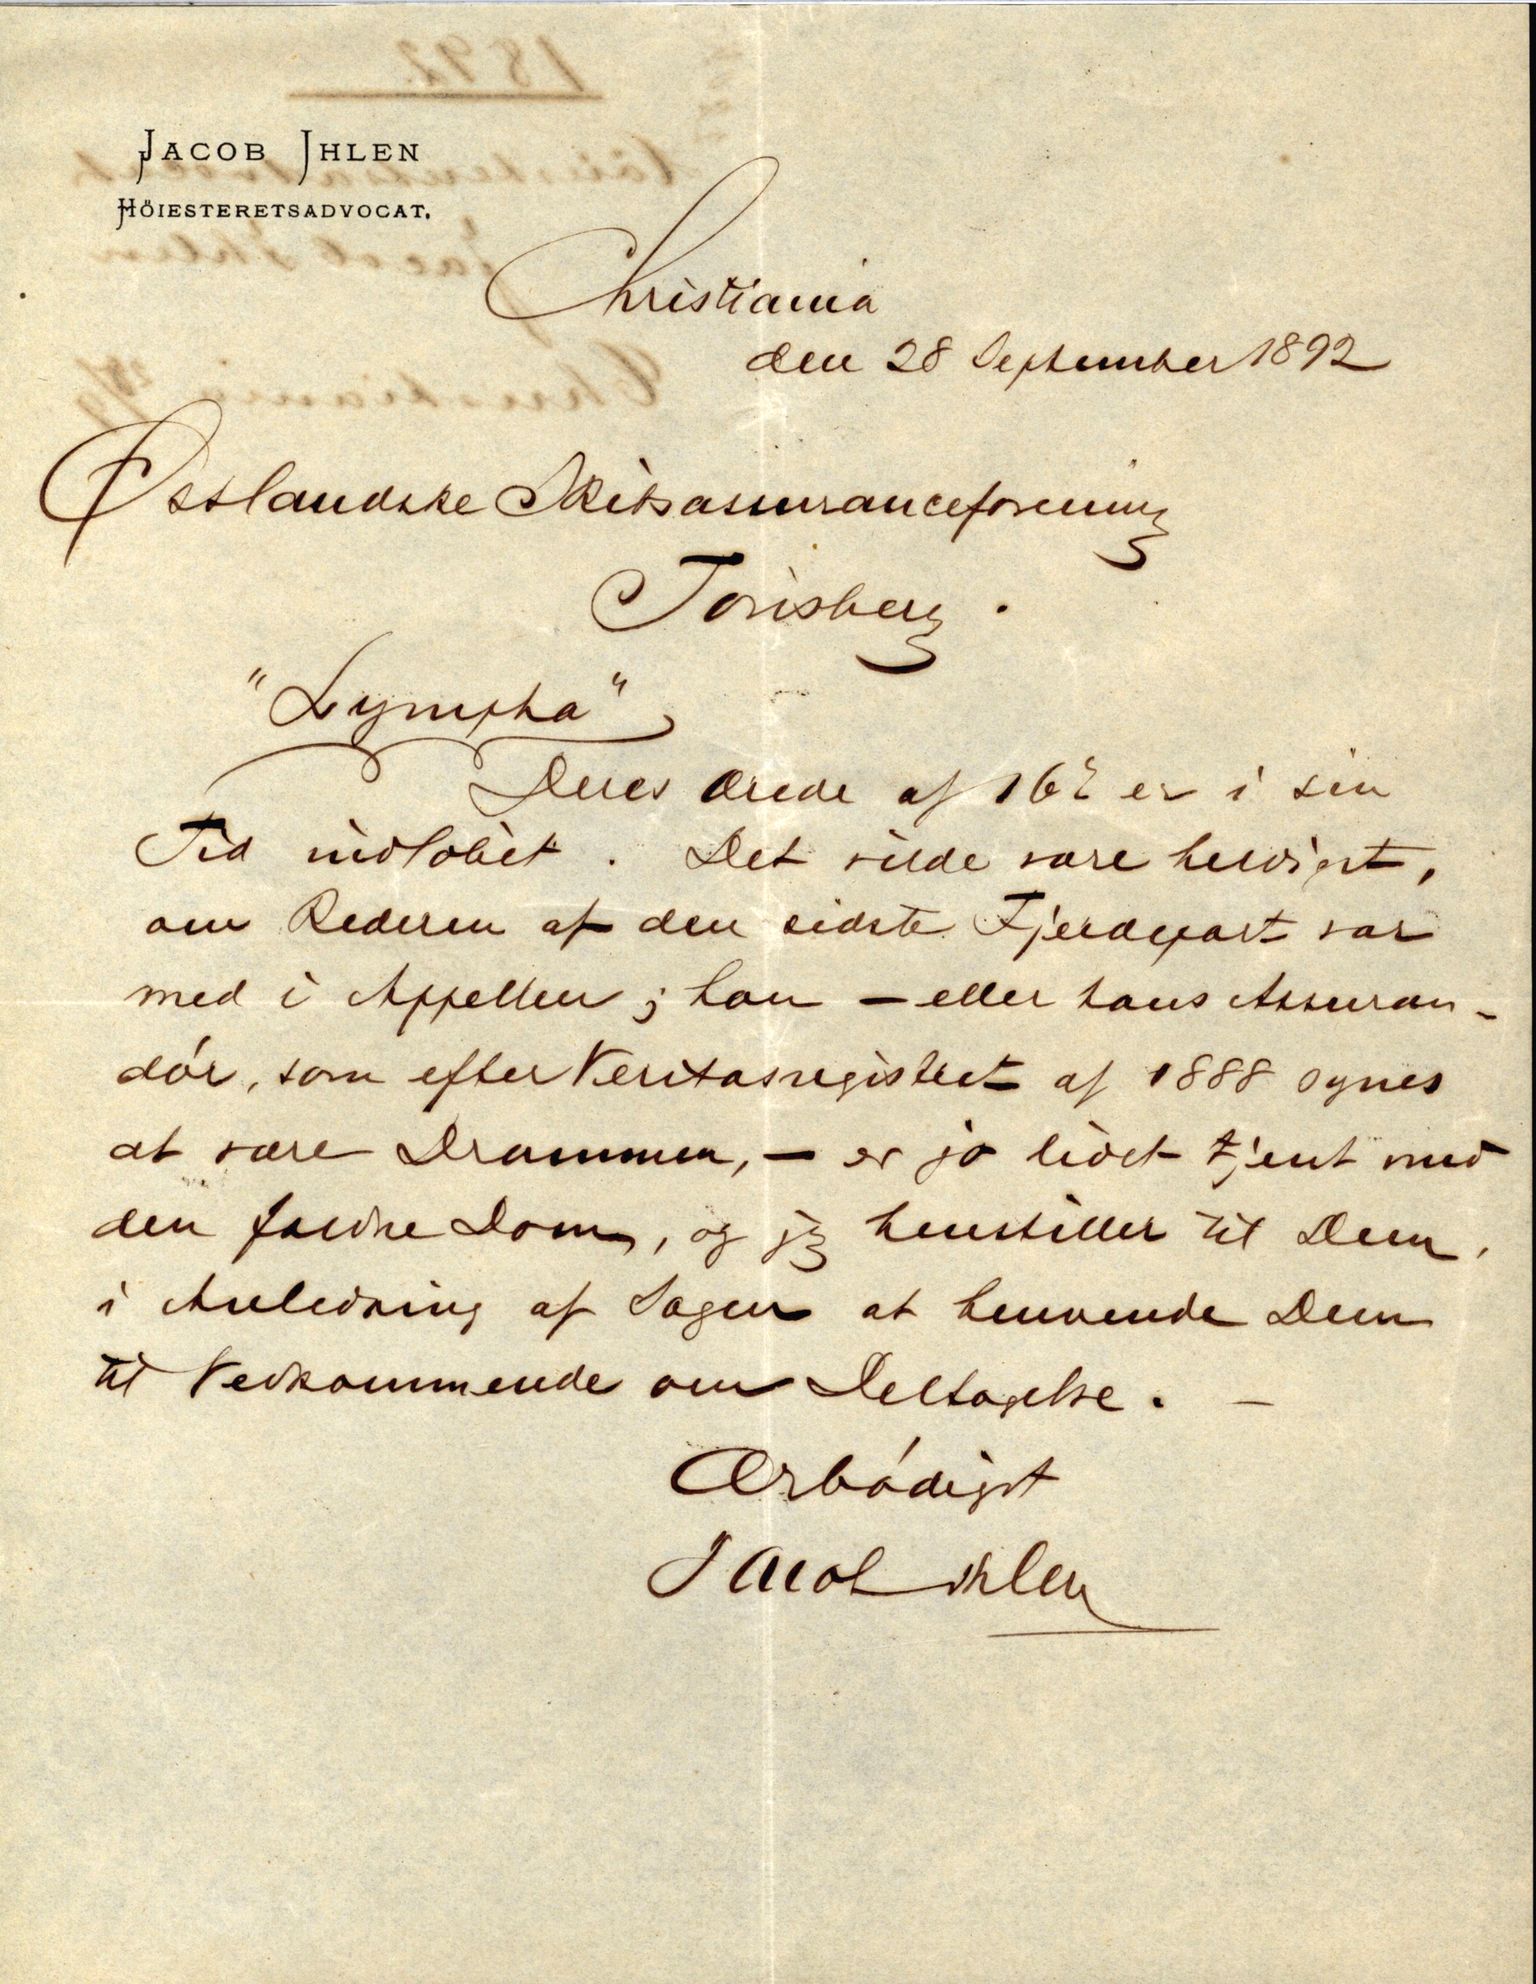 JACOB IHLEN
HÖIESTERETSADVOCAT.
Christiania
den 28 September 1892
Østlandske Skibsassuranceforening
Tønsberg.
"Lympha"
Deres ærede af 16de er i sin
Tid indløbet. Det vilde være heldigst,
om Rederen af den sidste Fjerdepart var
med i Appellen; han – eller hans Assuran-
dør, som efter Veritasregistret af 1888 synes
at være Drammen, – er jo lidet tjent med
den faldne Dom, og jeg henstiller til Dem,
i Anledning af Sagen at henvende Dem
til Vedkommende om Deltagelse. –
Ærbødigst
Jacob Ihlen